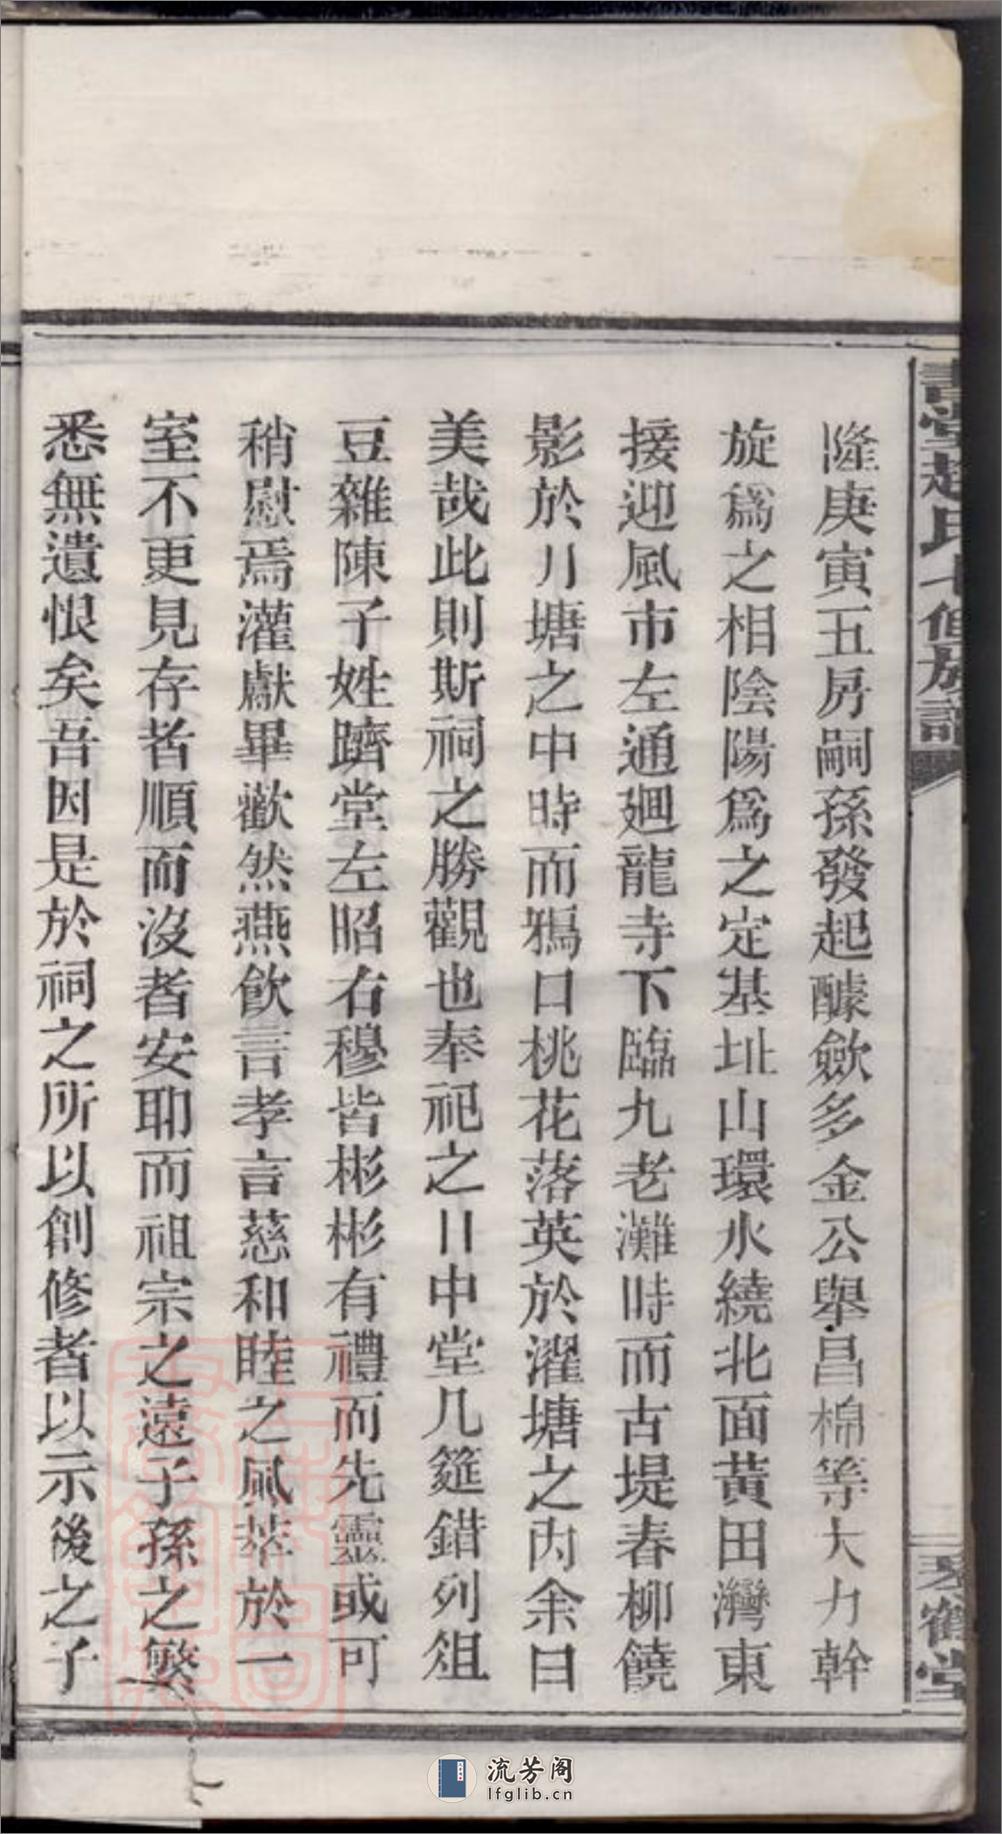 隆庚寅五房嗣孫發起醵歛多金公舉昌棉等大力幹
旋爲之相陰陽爲之定基址山環水繞北面黃田灣東
接迎風市左通廻龍寺下臨九老灘時而古堤春柳饒
影於月塘之中時而鴉口桃花落英於濯塘之內余曰
美哉此則斯祠之勝觀也奉祀之日中堂几筵錯列俎
豆雜陳子姓躋堂左昭右穆皆彬彬有禮而先靈或可
稍慰焉灌獻畢歡然燕飮言孝言慈和睦之風萃於一
室不更見存者順而沒者安耶而祖宗之遠子孫之繁
悉無遺恨矣吾因是於祠之所以創修者以示後之子
趙氏七修族譜
琴鶴堂
流芳阁
lfglib.cn